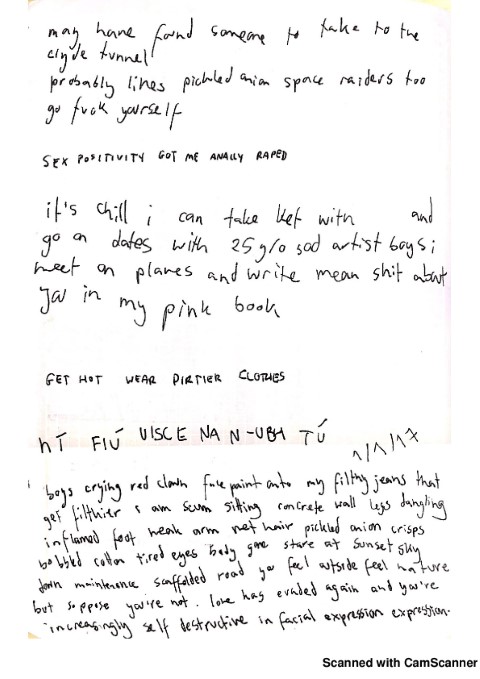 may have found someone to take to the
clyde tunnel
probably likes pickled onion space raiders too
go fuck yourself
SEX POSITIVITY GOT ME ANALLY RAPED
it's chill i can take ket with and
go on dates with 25 y/o sad artist boys i
meet on planes and write mean shit about
you in my pink book
GET HOT WEAR DIRTIER CLOTHES
NÍ FIÚ UISCE NA N-UBH TÚ
1/1/17
boys crying red clown face paint onto my filthy jeans that
get filthier i am scum sitting concrete wall legs dangling
inflamed foot weak arm wet hair pickled onion crisps
bobbled cotton tired eyes body gone stare at sunset sky
down maintenance scaffolded road you feel outside feel nature
but suppose you're not. love has evaded again and you're
increasingly self destructive in facial expression expression.
Scanned with CamScanner